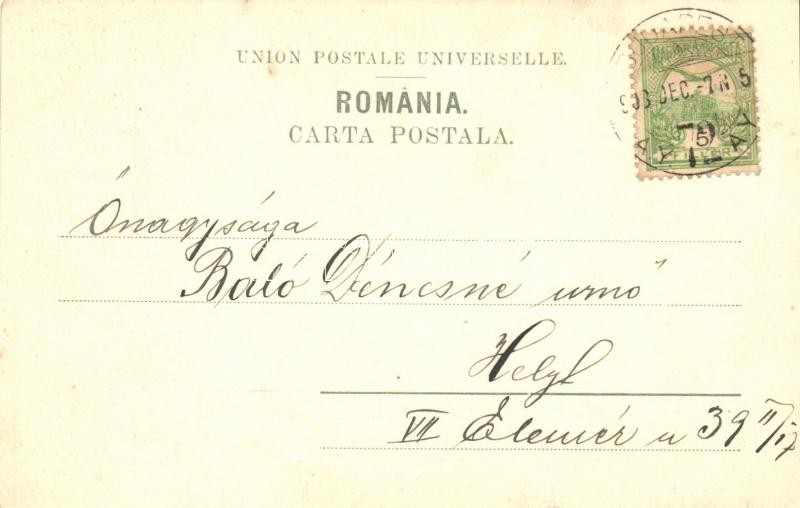 UNION POSTALE UNIVERSELLE.
ROMÂNIA.
CARTA POSTALA.
903 DEC. -7 N 5
5
FILLÉR
Ónagysága
Baló Dénesné urnő
Helyt
VII Elemér u 39 II/17